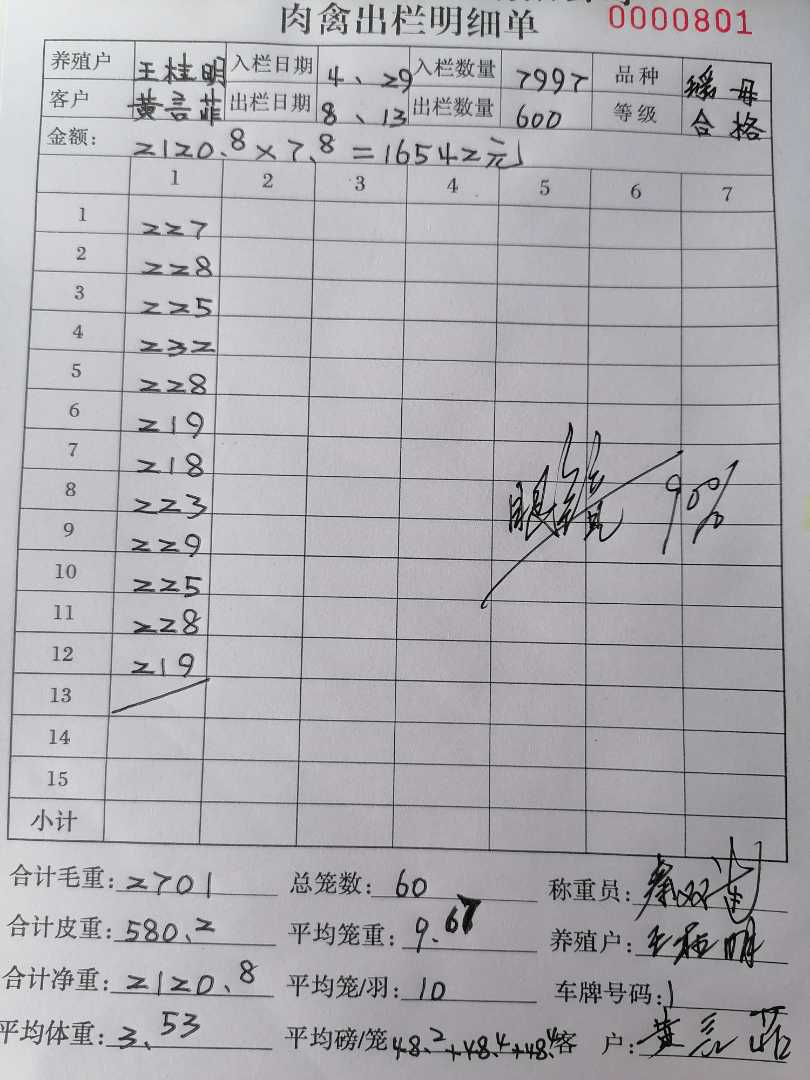 肉禽出栏明细单 0000801
养殖户 王桂明 入栏日期 4、29 入栏数量 7997 品种 瑶母
客户 黄言菲 出栏日期 8、13 出栏数量 600 等级 合格
金额: 2120.8×7.8=16542元
1 2 3 4 5 6 7
1 227
2 228
3 225
4 232
5 228
6 219
7 218
8 223
9 229
10 225
11 228
12 219
13
14
15
小计
90%
合计毛重: 2701 总笼数: 60 称重员:
合计皮重: 580.2 平均笼重: 9.67 养殖户: 王桂明
合计净重: 2120.8 平均笼/羽: 10 车牌号码:
平均体重: 3.53 平均磅/笼 48.2+48.4+48.4 客户: 黄言菲